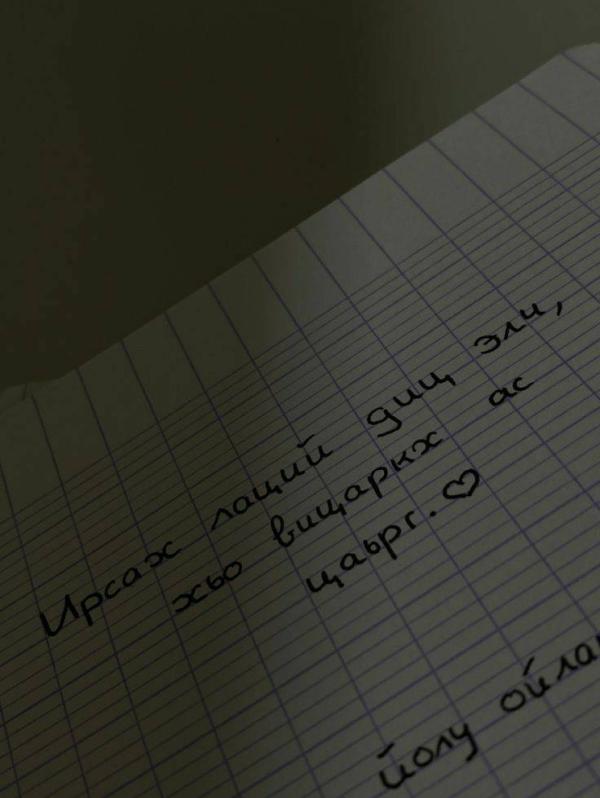 Ирсах лаций диц эли,
хьо вицаркх ас
цаьрг. ♡
йолу ойла